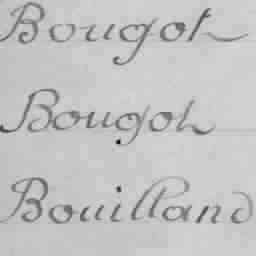 Bougot
Bougot
Bouilland